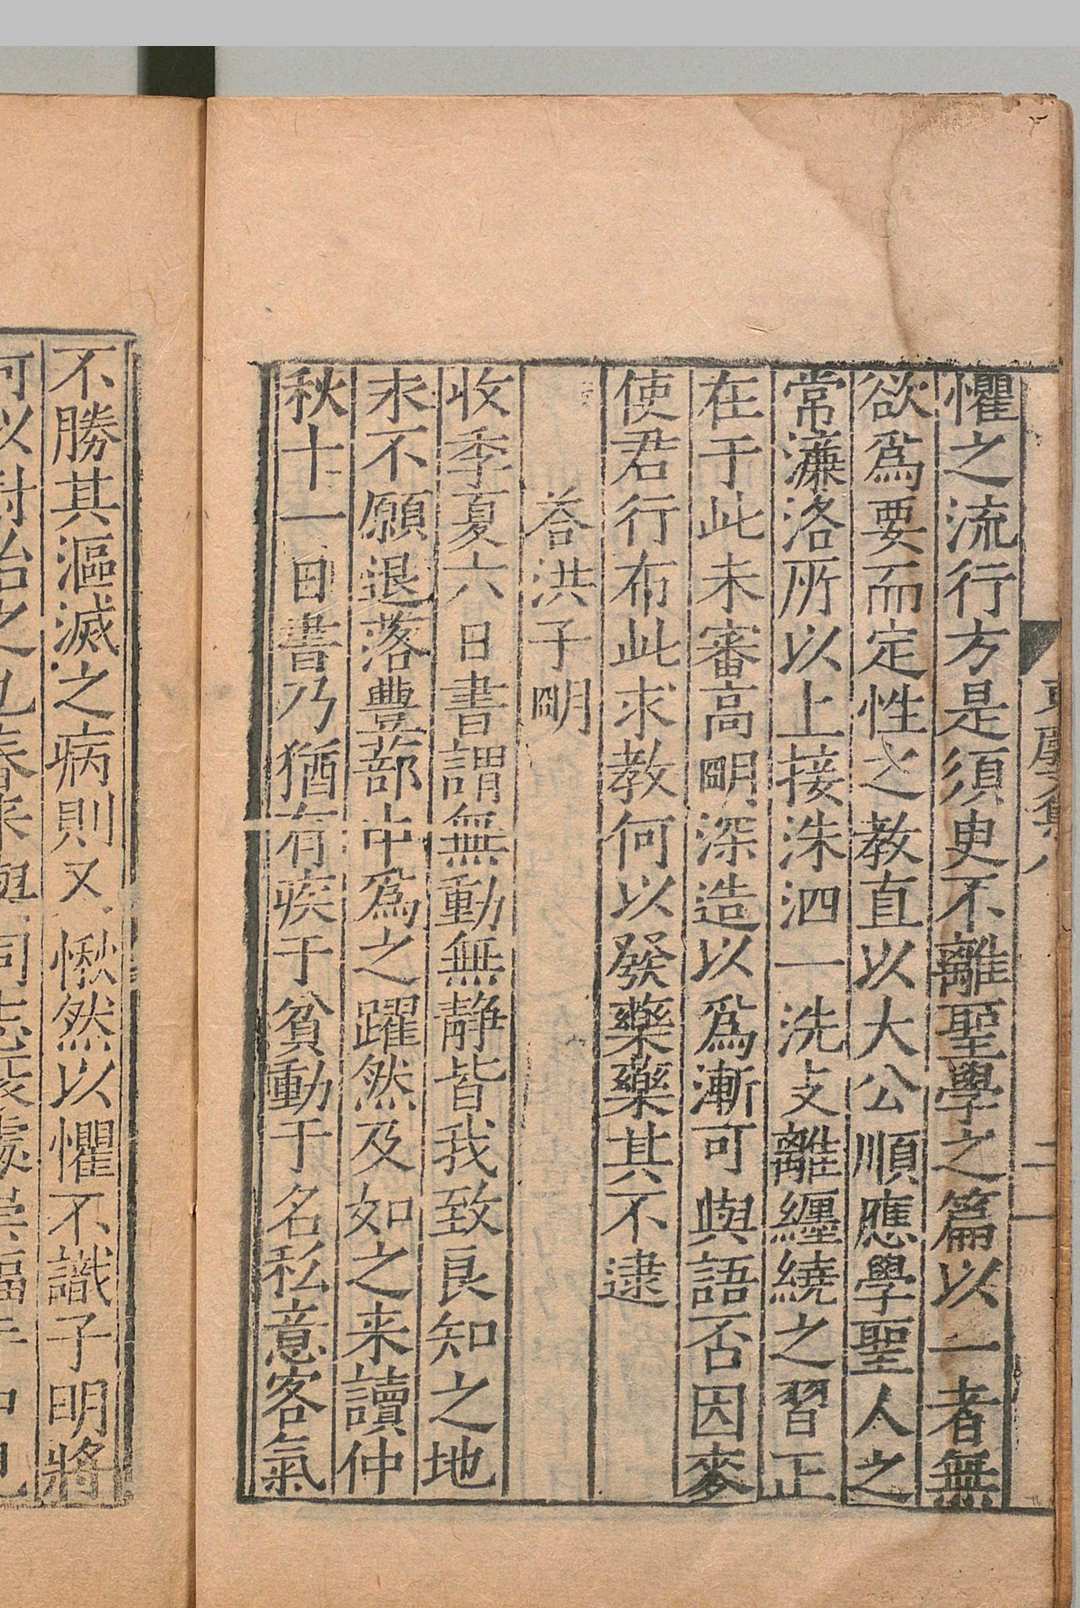 懼之流行方是須臾不離聖學之篇以一者無
欲爲要而定性之教直以大公順應學聖人之
常濂洛所以上接洙泗一洗支離纏繞之習正
在于此未審高明深造以爲漸可與語否因麥
使君行布此求教何以發藥藥其不逮
荅洪子明
收季夏六日書謂無動無靜皆我致良知之地
未不願退落豐蔀中爲之躍然及如之来讀仲
秋十一日書乃猶有疾于貧動于名私意客氣
不勝其漚滅之病則又愀然以懼不識子明將